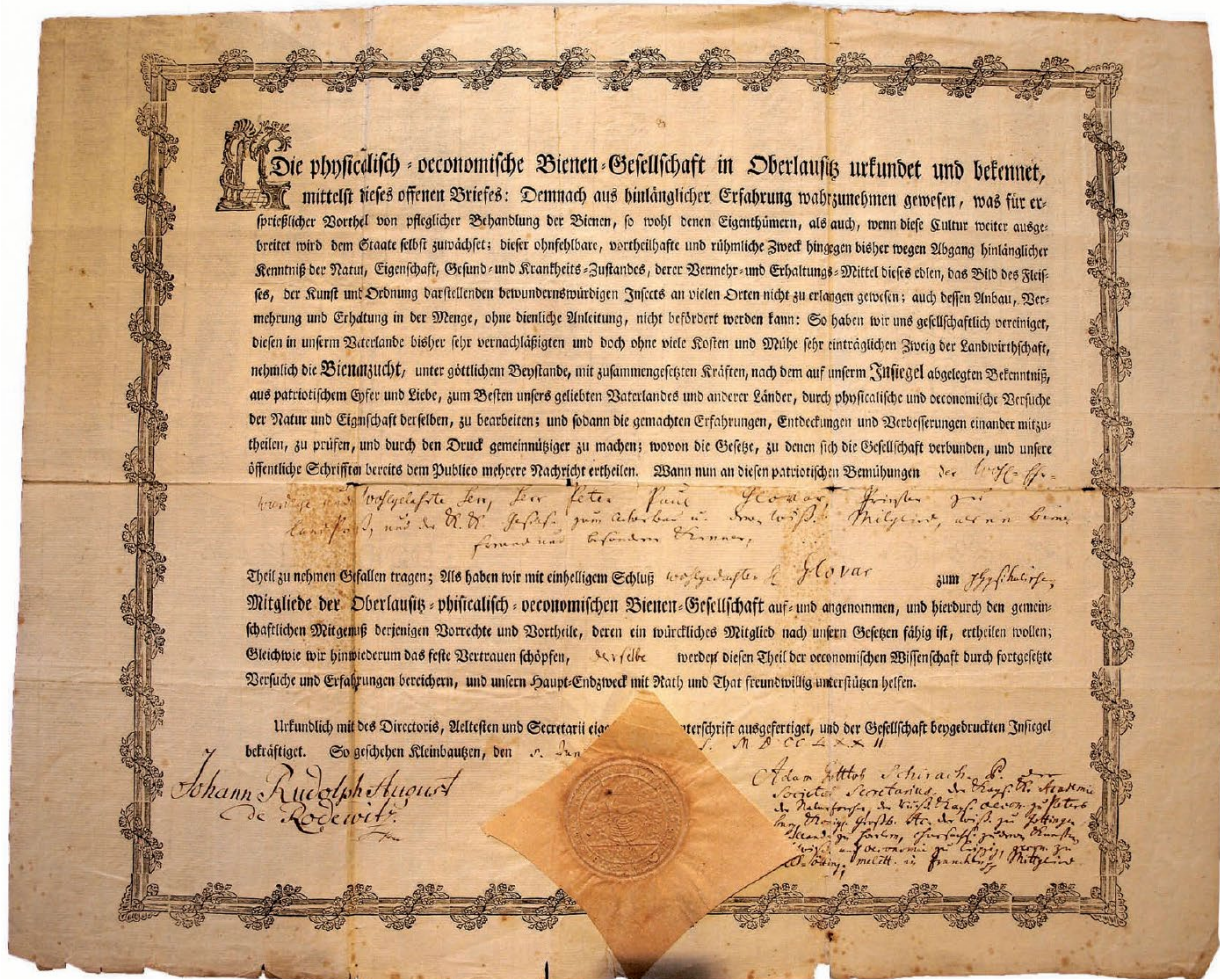 Die physicalisch-oeconomische Bienen-Gesellschaft in Oberlausitz urkundet und bekennet,
mittelst dieses offenen Briefes: Demnach aus hinlänglicher Erfahrung wahrzunehmen gewesen, was für er-
sprießlicher Vorthel von pfleglicher Behandlung der Bienen, so wohl denen Eigenthümern, als auch, wenn diese Cultur weiter ausge-
breitet wird dem Staate selbst zuwächset; dieser ohnfehlbare, vortheilhafte und rühmliche Zweck hingegen bisher wegen Abgang hinlänglicher
Kenntniß der Natur, Eigenschaft, Gesund- und Krankheits-Zustandes, derer Vermehr- und Erhaltungs-Mittel dieses edlen, das Bild des Fleis-
ses, der Kunst und Ordnung darstellenden bewundernswürdigen Insects an vielen Orten nicht zu erlangen gewesen; auch dessen Anbau, Ver-
mehrung und Erhaltung in der Menge, ohne dienliche Anleitung, nicht befördert werden kann: So haben wir uns gesellschaftlich vereiniget,
diesen in unserm Vaterlande bisher sehr vernachläßigten und doch ohne viele Kosten und Mühe sehr einträglichen Zweig der Landwirthschaft,
nehmlich die Bienenzucht, unter göttlichem Beystande, mit zusammengesetzten Kräften, nach dem auf unserm Insiegel abgelegten Bekenntniß,
aus patriotischem Eyfer und Liebe, zum Besten unsers geliebten Vaterlandes und anderer Länder, durch physicalische und oeconomische Versuche
der Natur und Eigenschaft derselben, zu bearbeiten; und sodann die gemachten Erfahrungen, Entdeckungen und Verbesserungen einander mitzu-
theilen, zu prüfen, und durch den Druck gemeinnütziger zu machen; wovon die Gesetze, zu denen sich die Gesellschaft verbunden, und unsere
öffentliche Schrifften bereits dem Publico mehrere Nachricht ertheilen. Wann nun an diesen patriotischen Bemühungen der Wohl-Ehr-
und Wohlgelahrte Herr, Herr Peter Paul Glovar Priester zu
Landspreiß, und der K. K. Gesellsch. zum Ackerbau u. Mitglied, als ein Bienen
freund und besonderer Kenner,
Theil zu nehmen Gefallen tragen; Als haben wir mit einhelligem Schluß wohlgedachten H. Glovar zum physikalischen
Mitgliede der Oberlausitz-phisicalisch-oeconomischen Bienen-Gesellschaft auf- und angenommen, und hierdurch den gemein-
schaftlichen Mitgenuß derjenigen Vorrechte und Vortheile, deren ein würckliches Mitglied nach unsern Gesetzen fähig ist, ertheilen wollen;
Gleichwie wir hinwiederum das feste Vertrauen schöpfen, derselbe werden diesen Theil der oeconomischen Wissenschaft durch fortgesetzte
Versuche und Erfahrungen bereichern, und unsern Haupt-Endzweck mit Rath und That freundwillig unterstützen helfen.
Urkundlich mit des Directoris, Aeltesten und Secretarii eige terschrift ausgefertiget, und der Gesellschaft beygedruckten Insiegel
bekräftiget. So geschehen Kleinbautzen, den MDCCLXXII
Johann Rudolph August
de Rodewitz
Adam Gottlob Schirach P. der
Societet Secretarius, der Kays. Akademie
der Naturforscher, der zu Peters
burg, Königl. Großb. der zu Göttingen
zu Harlem,
und oeconomie zu Leipzig,
Mitglied